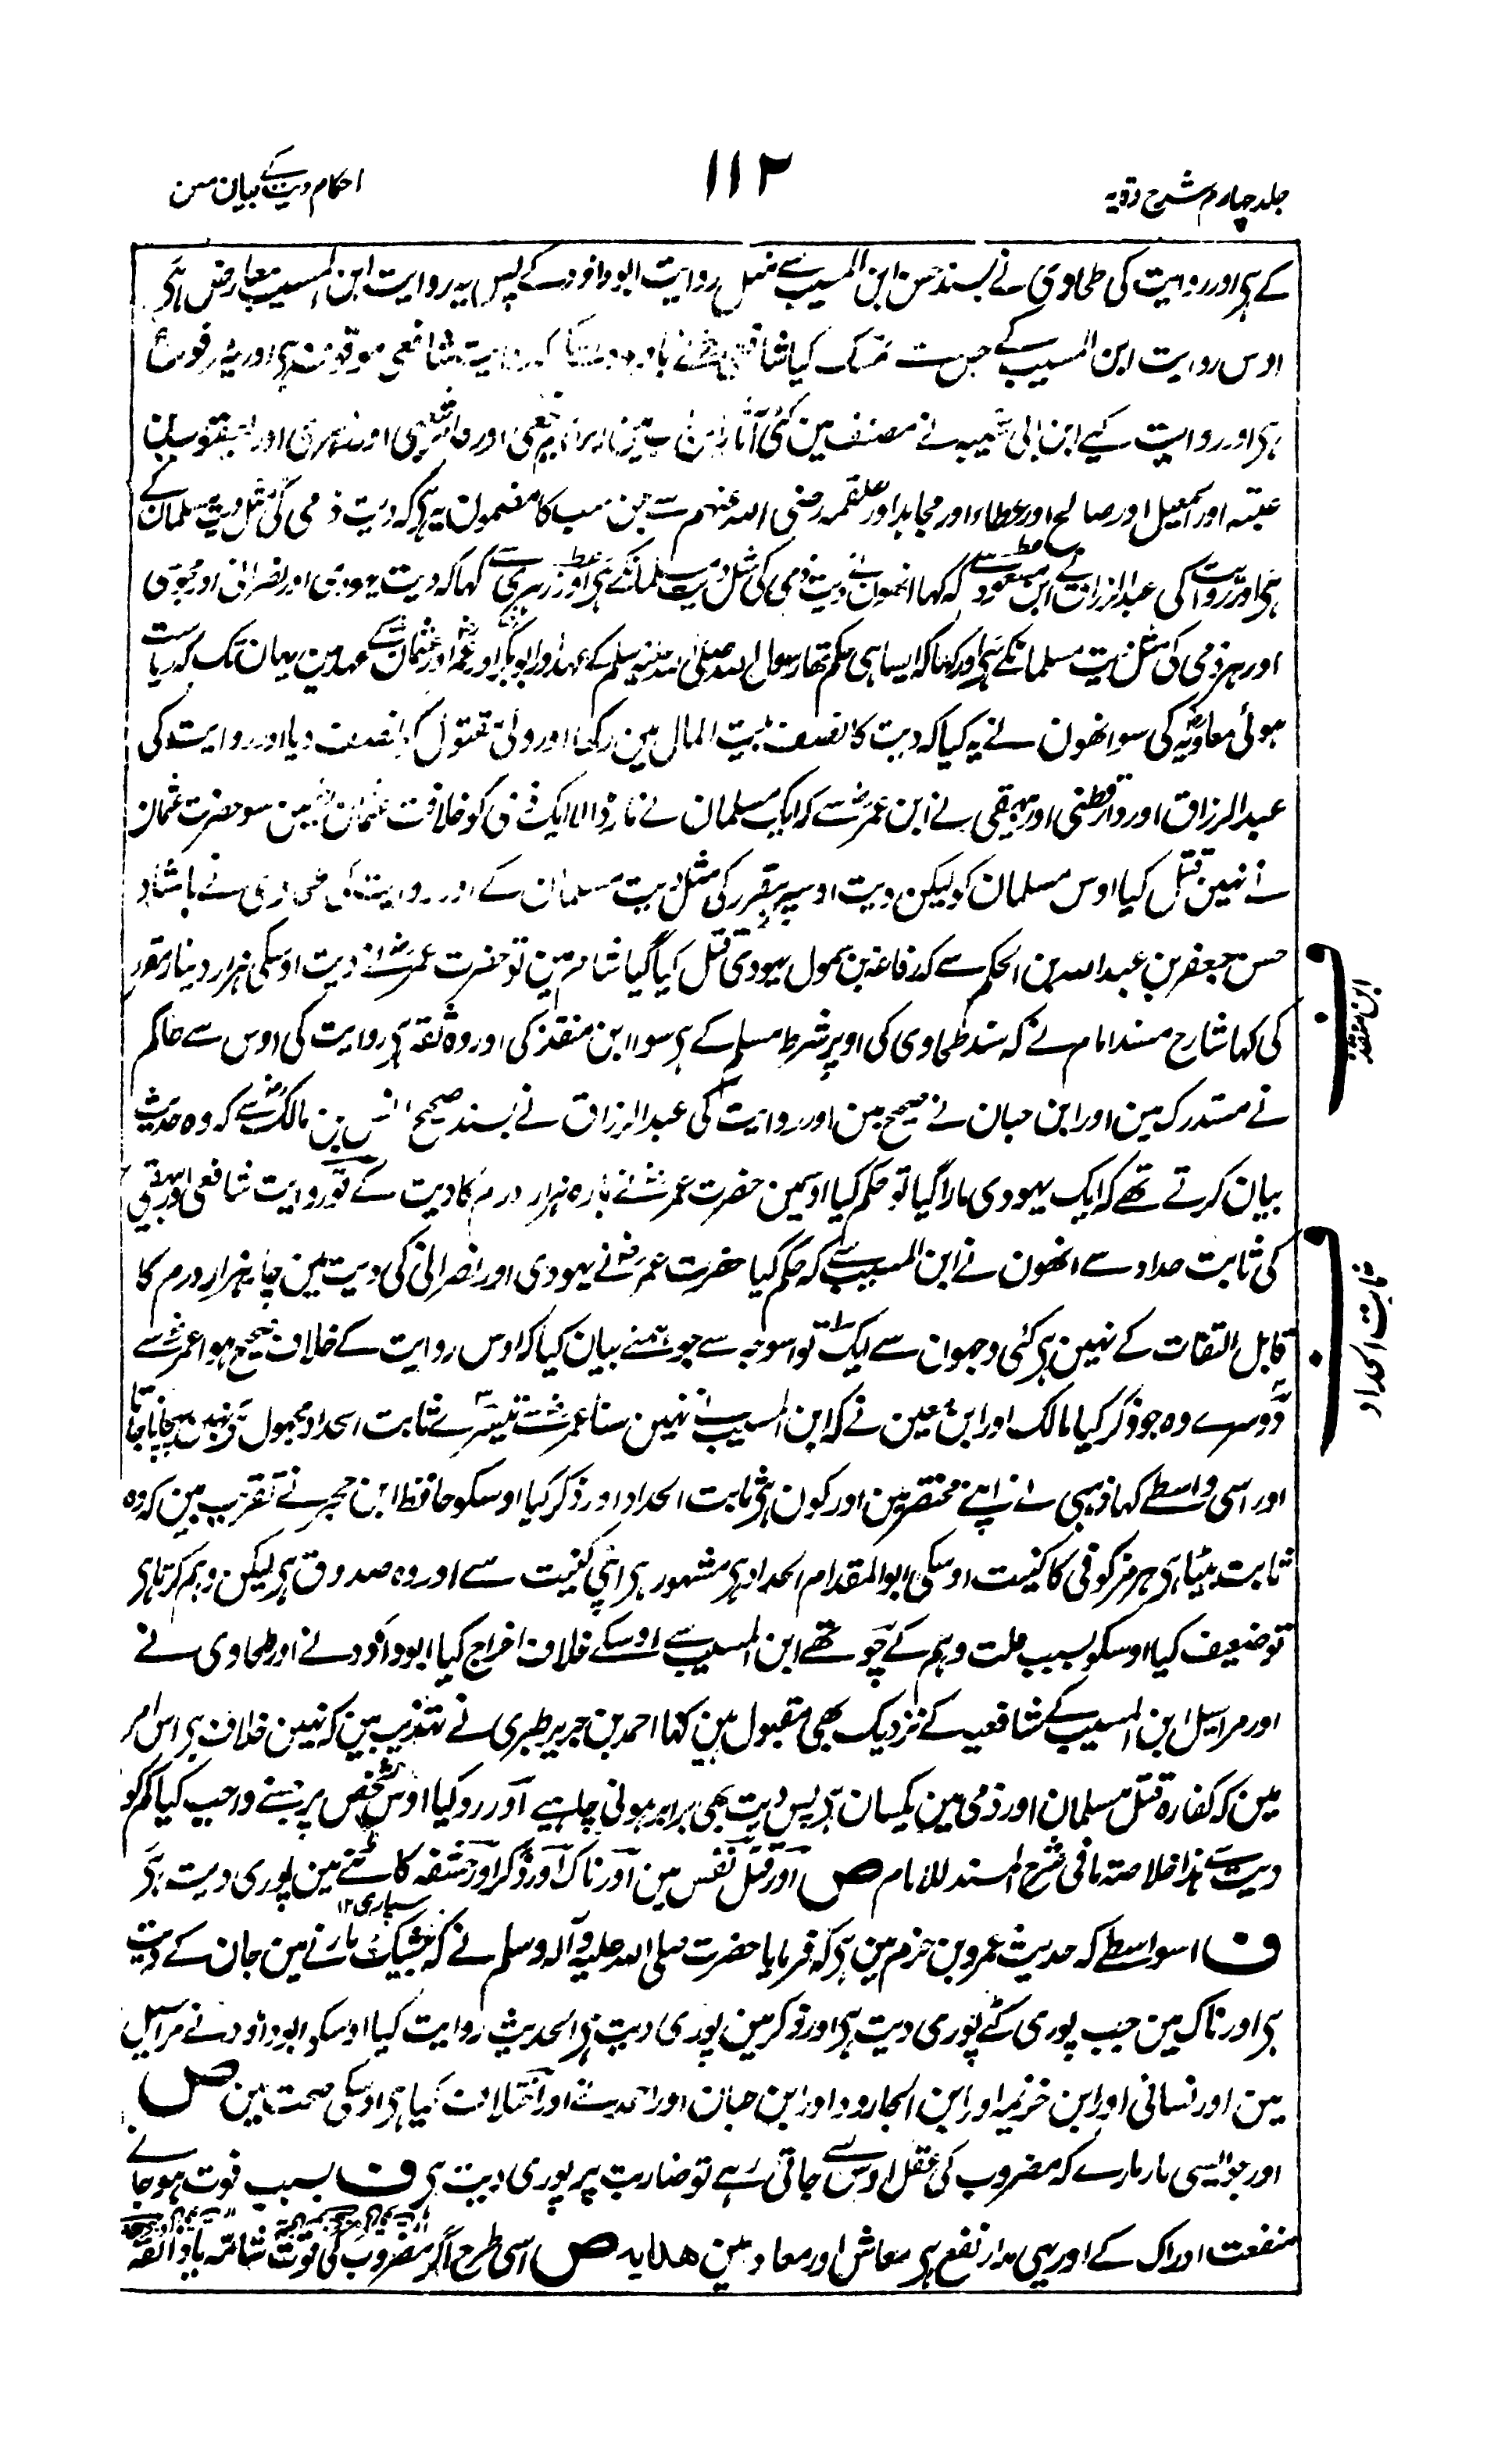 جلد چہارم شرح وقایہ
۱۱۲
احکام دیت کے بیان مین
کے ہی اور روایت کی طحاوی نے بسند حسن ابن المسیب سے مثل روایت ابو داؤد کے پس یہ روایت ابن المسیب معارض ہی
اوس روایت ابن المسیب کے جس سے تمسک کیا شافعی نے باوجودیکہ روایت شافعی موقوف ہی اور یہ مرفوع
ہی اور روایت کیے ابن ابی شیبہ نے مصنف مین کئی آثار ابراہیم نخعی اور شعبی اور زہری اور یعقوب بن
عتبہ اور اسمعیل اور صالح اور عطاء اور مجاہد اور علقمہ رضی اللہ عنہم سے جن سب کا مضمون یہ ہی کہ دیت ذمی کی مثل دیت مسلمان کے
ہی اور روایت کی عبد الرزاق نے ابن مسعود سے کہ کہا انھون نے دیت ذمی کی مثل دیت مسلمانکے ہی اور زہری سے کہا کہ دیت یہودی اور نصرانی اور مجوسی
اور ہر ذمی کی مثل دیت مسلمانکے ہی اور کہا کہ ایسا ہی حکم تھا رسول اللہ صلی اللہ علیہ وسلم کے عہد اور ابوبکر اور عمر اور عثمان کے عہد مین یہان تک کہ ریاست
ہوئی معاویہ کی سو انھون نے یہ کیا کہ دیت کا نصف بیت المال مین رکھا اور ولی مقتول کو نصف دیا اور روایت کی
عبد الرزاق اور دارقطنی اور بیہقی نے ابن عمر سے کہ ایک مسلمان نے مار ڈالا ایک ذمی کو خلافت عثمان مین سو حضرت عثمان
نے نہین قتل کیا اوس مسلمان کو لیکن دیت اوسپر مقرر کی مثل دیت مسلمان کے اور روایت کی طحاوی نے باسناد
حسن جعفر بن عبد اللہ بن الحکم سے کہ رفاعہ بن سمول یہودی قتل کیا گیا شام مین تو حضرت عمر نے دیت اوسکی ہزار دینار مقرر
کی کہا شارح مسند امام نے کہ سند طحاوی کی اوپر شرط مسلم کے ہی سوا ابن منقذ کی اور وہ ثقہ ہی روایت کی اوس سے حاکم
نے مستدرک مین اور ابن حبان نے صحیح مین اور روایت کی عبد الرزاق نے بسند صحیح انس بن مالک سے کہ وہ حدیث
بیان کرتے تھے کہ ایک یہودی مارا گیا تو حکم کیا اوسمین حضرت عمر نے بارہ ہزار درم کا دیت کے تو روایت شافعی اور بیہقی
کی ثابت حداد سے انھون نے ابن المسیب سے کہ حکم کیا حضرت عمر نے یہودی اور نصرانی کی دیت مین چار ہزار درم کا
قابل التفات کے نہین ہی کئی وجہون سے ایک تو اسوجہ سے جو ہمنے بیان کیا کہ اوس روایت کے خلاف صحیح ہوا عمر سے
دوسرے وہ جو ذکر کیا مالک اور ابن معین نے کہ ابن المسیب نے نہین سنا عمر سے تیسرے ثابت الحداد مجہول ہی نہین پہچانا جاتا
اور اسی واسطے کہا ذہبی نے اپنے مختصر مین اور کون ہی ثابت الحداد اور ذکر کیا اوسکو حافظ ابن حجر نے تقریب مین کہ وہ
ثابت بیٹا ہی ہرمز کوفی کا کنیت اوسکی ابو المقدام الحداد ہی مشہور ہی اپنی کنیت سے اور وہ صدوق ہی لیکن وہم کرتا ہی
تو ضعیف کیا اوسکو بسبب علت وہم کے چوتھے ابن المسیب سے اوسکے خلاف اخراج کیا ابو داؤد نے اور طحاوی نے
اور مراسیل ابن المسیب کے شافعیہ کے نزدیک بھی مقبول ہین کہا احمد بن جریر طبری نے تہذیب مین کہ نہین خلاف ہی اس امر
مین کہ کفارہ قتل مسلمان اور ذمی مین یکسان ہی پس دیت بھی برابر ہونی چاہیے اور رد کیا اوس شخص پر جسنے واجب کیا کم کو
دیت سے ہذا خلاصۃ ما فی شرح المسند للامام ص اور قتل نفس مین اور ناک اور ذکر اور حشفہ کاٹنے مین پوری دیت ہی
سپاری ۱۲
ف اسواسطے کہ حدیث عمرو بن حزم مین ہی کہ فرمایا حضرت صلی اللہ علیہ وآلہ وسلم نے کہ بیشک مارنے مین جان کے دیت
ہی اور ناک مین جب پوری کٹے پوری دیت ہی اور ذکر مین پوری دیت ہی الحدیث روایت کیا اوسکو ابو داؤد نے مراسیل
مین اور نسائی اور ابن خزیمہ اور ابن الجارود اور ابن حبان اور احمد نے اور اختلاف کیا ہی اوسکی صحت مین ص
اور جو ایسی مار مارے کہ مضروب کی عقل اوس سے جاتی رہے تو ضارب پر پوری دیت ہی ف بسبب فوت ہوجانے
منفعت ادراک کے اور یہی مدار نفع ہی معاش اور معاد مین ھدایہ ص اسی طرح اگر مضروب کی قوت شامہ یا ذائقہ
ابن منقذ
ثابت الحداد